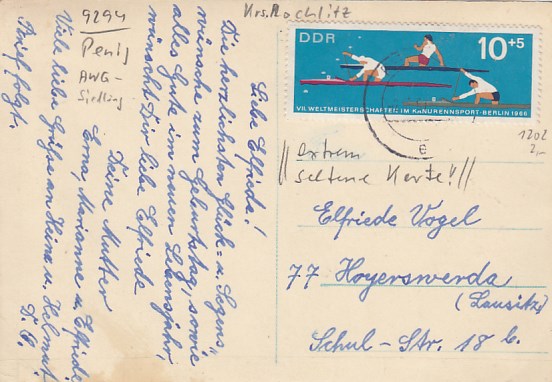 9294
Penig
AWG-
Siedlung
Krs. Rochlitz
DDR
10+5
VII. WELTMEISTERSCHAFTEN IM KANURENNSPORT·BERLIN 1966
1202
2,-
//extrem
seltene Karte!//
Liebe Elfriede!
Die herzlichsten Glück- u. Segens-
wünsche zum Geburtstag, sowie
alles Gute im neuen Lebensjahr,
wünscht Dir liebe Elfriede
Deine Mutter
Marianne u. Elfriede
Viele liebe Grüße an Heinz u. Helmut.
Brief folgt.
D. O.
Elfriede Vogel
77 Hoyerswerda
(Lausitz)
Schul-Str. 18 b.